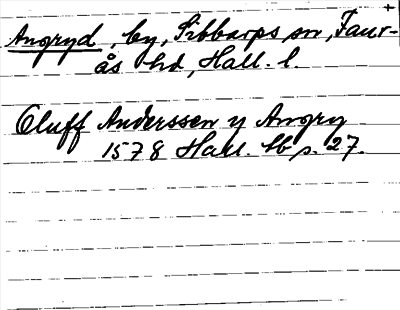 Angryd, by, Sibbarps sn, Faur-
ås hd, Hall. l.
Oluff Anderssen y Angry
1578 Hall. lb s. 27.